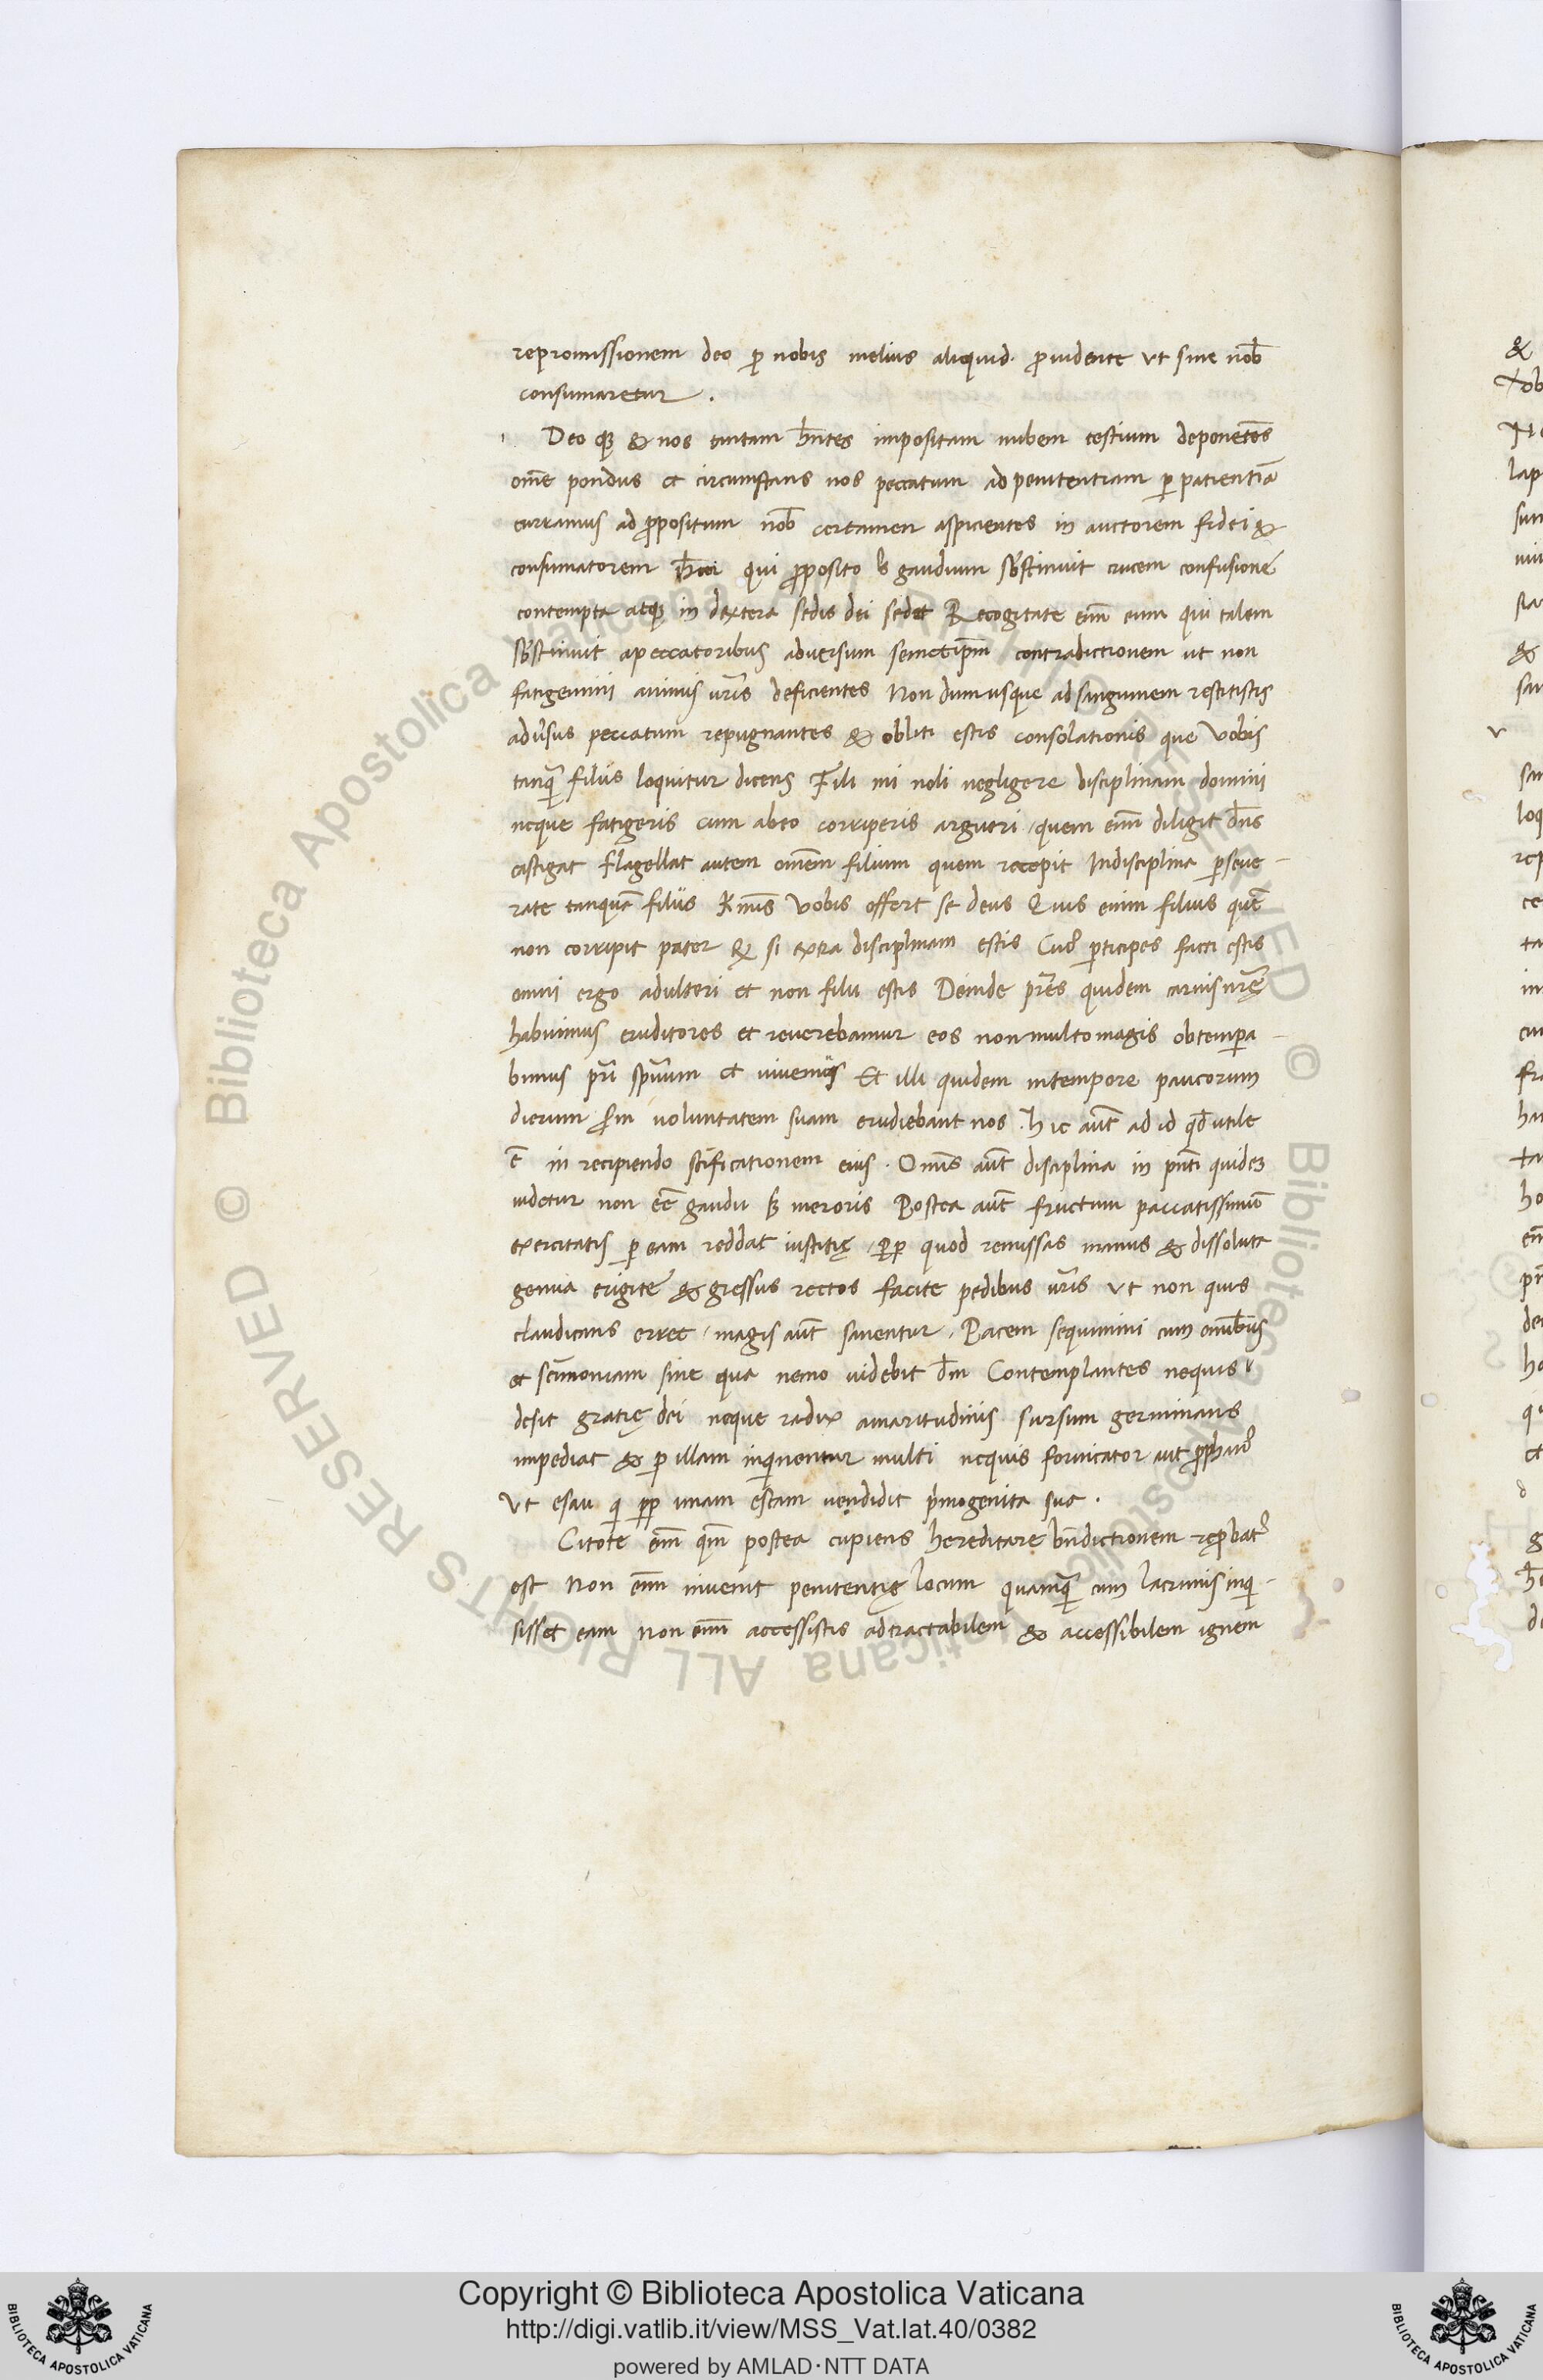 repromissionem deo ꝑ nobis melius aliquid. ꝓuidente ut sine nob̄
consumaretur .
Deo qꝫ & nos tantam hn̄tes impositam nubem testium deponētes
om̄e pondus et circumstans nos peccatum ad penitentiam ꝑ patientiā
curramus ad ꝓpositum nob̄ certamen aspicientes in auctorem fidei &
consumatorem qui ꝓposito gaudium sb̄stinuit crucem confusionē
contempta atqꝫ in dextera sedis dei sedet Recogitate em̄ eum qui talem
sb̄stinuit a peccatoribus aduersum semetip̄m contradictionem ut non
fatigemini animis ur̄is deficientes Non dum usque ad sanguinem restitistis
adūsus peccatum repugnantes & obliti estis consolationis que uobis
tanqꝫ filiis loquitur dicens Fili mi noli negligere disciplinam domini
neque fatigeris cum ab eo corriperis argueri quem em̄ diligit dn̄s
castigat flagellat autem om̄em filium quem recepit In disciplina ꝑseue-
rate tanquā filiis uobis offert se deus Quis enim filius quē
non corripit pater & si extra disciplinam estis Cuiꝰ ꝑticipes facti estis
omni ergo adulteri et non filii estis Deinde pr̄es quidem carnis nr̄ę
habuimus eruditores et reuerebamur eos non multo magis obtempa-
bimus pr̄i sp̄uum et uiuemus Et illi quidem in tempore paucorum
dierum voluntatem suam erudiebant nos . hic aūt ad id qd̄ utile
ē in recipiendo sc̄ificationem eius . Omīs aūt disciplina in pn̄ti quidem
uidetur non eē gaudii sꝫ meroris Postea aūt fructum paccatissimū
exercitatis ꝑ eam reddat iustitię . Pꝓ quod remissas manus & dissoluta
genua erigite & gressus rectos facite pedibus ur̄is ut non quis
claudicans erret / magis aūt sanentur . Pacem sequimini cum omīb;
et sc̄imoniam sine qua nemo uidebit dm̄ Contemplantes nequis
desit gratię dei neque radix amaritudinis sursum germinans
impediat & ꝑ illam inqinentur multi nequis fornicator aut ꝓphanꝰ
ut esau qi pꝓ unam escam uendidit pimogenita sua .
Citote em̄ qm̄ postea cupiens hereditare bn̄dictionem reꝓbatꝰ
est Non em̄ inuenit penitentię locum quamqꝫ cum lacrimis inqi-
sisset eam Non em̄ accessistis ad tractabilem & accessibilem ignem
Copyright © Biblioteca Apostolica Vaticana
http://digi.vatlib.it/view/MSS_Vat.lat.40/0382
powered by AMLAD·NTT DATA
BIBLIOTECA APOSTOLICA VATICANA
BIBLIOTECA APOSTOLICA VATICANA
© Biblioteca Apostolica Vaticana ALL RIGHTS RESERVED